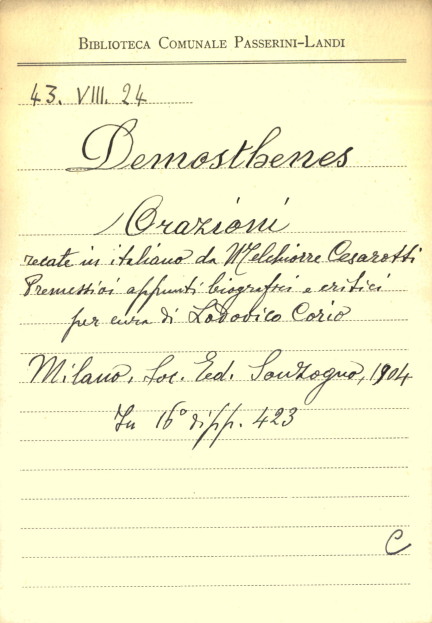 BIBLIOTECA COMUNALE PASSERINI-LANDI
43. VIII. 24
Demosthenes
Orazioni
recate in italiano da Melchiorre Cesarotti
Premessivi appunti biografici e critici
per cura di Lodovico Corio
Milano, Soc. Ed. Sonzogno, 1904
In 16° di pp. 423
C